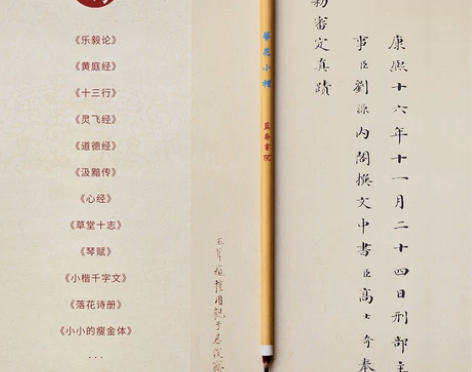 《乐毅论》
《黄庭经》
《十三行》
《灵飞经》
《道德经》
《汲黯传》
《心经》
《草堂十志》
《琴赋》
《小楷千字文》
《落花诗册》
《小小的瘦金体》
...
小楷
康熙十六年十一月二十四日刑部主
事臣劉源内閣撰文中書臣高士奇奉
勅審定真蹟